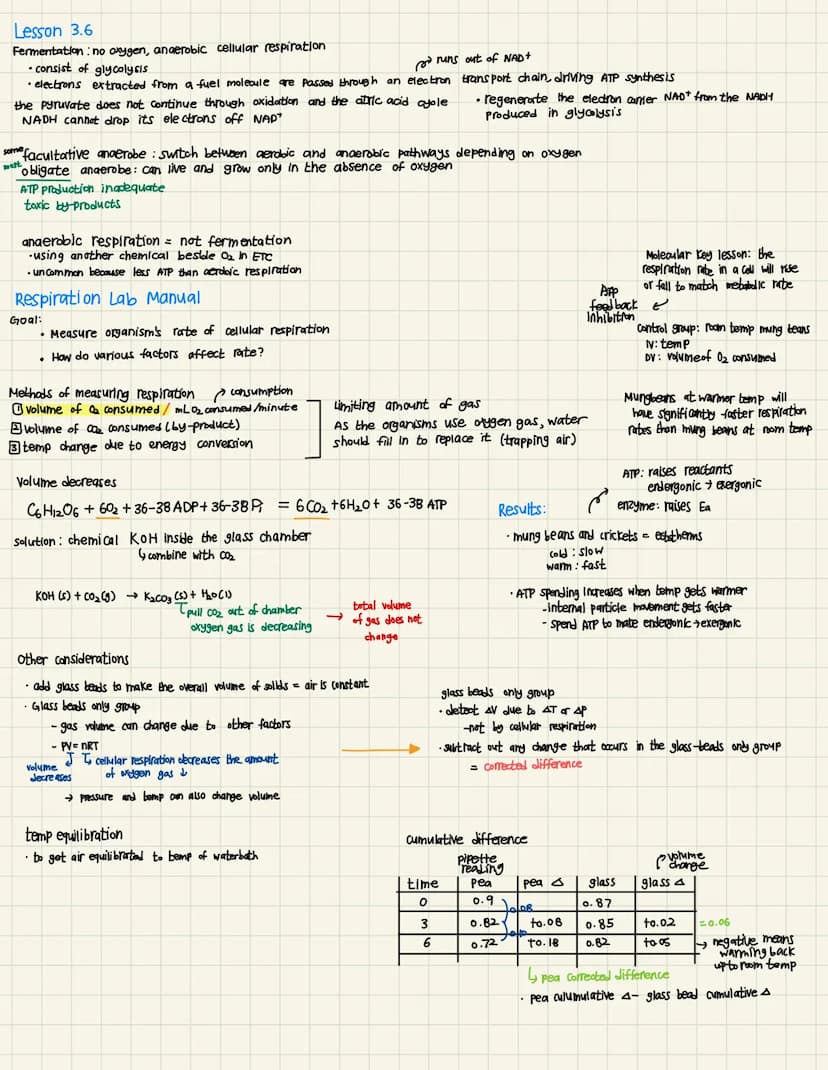 Lesson 3.6
Fermentation : no oxygen, anaerobic cellular respiration
• consist of glycolysis
→ runs out of NAD+
• electrons extracted from a fuel molecule are passed through an electron transport chain, driving ATP synthesis
the pyruvate does not continue through oxidation and the citric acid cycle
NADH cannot drop its electrons off NAD+
• regenerate the electron carrier NAD+ from the NADH
produced in glycolysis
some facultative anaerobe : switch between aerobic and anaerobic pathways depending on oxygen
obligate anaerobe: can live and grow only in the absence of oxygen
ATP production inadequate
toxic by-products
anaerobic respiration = not fermentation
• using another chemical beside O2 in ETC
• uncommon because less ATP than aerobic respiration
Molecular key lesson: the
respiration rate in a cell will rise
or fall to match metabolic rate
ATP
feedback
inhibition
Control group: room temp mung beans
IV: temp
DV: volume of O2 consumed
Mung beans at warmer temp will
have significantly faster respiration
rates than mung beans at room temp
Respiration Lab Manual
Goal:
• Measure organism's rate of cellular respiration
• How do various factors affect rate?
Methods of measuring respiration
→ consumption
1 volume of O2 consumed / mL O2 consumed/minute
2 volume of CO2 consumed (by-product)
3 temp change due to energy conversion
Limiting amount of gas
As the organisms use oxygen gas, water
should fill in to replace it (trapping air)
Volume decreases
C6H12O6 + 6O2 + 36-38 ADP + 36-38 Pi = 6CO2 + 6H2O + 36-38 ATP
solution : chemical KOH inside the glass chamber
↳ combine with CO2
KOH (s) + CO2(g) → K2CO3 (s) + H2O(l)
pull CO2 out of chamber
oxygen gas is decreasing
→ total volume
of gas does not
change
ATP: raises reactants
endergonic → exergonic
enzyme: raises Ea
Results:
• mung beans and crickets = ectotherms
cold : slow
warm : fast
• ATP spending increases when temp gets warmer
- internal particle movement gets faster
- spend ATP to make endergonic → exergonic
Other considerations
• add glass beads to make the overall volume of solids = air is constant
• Glass beads only group
- gas volume can change due to other factors
- PV = nRT
volume
decreases
↳ cellular respiration decreases the amount
of oxygen gas ↓
→ pressure and temp can also change volume
glass beads only group
• detect ΔV due to ΔT or ΔP
- not by cellular respiration
• subtract out any change that occurs in the glass-beads only group
= corrected difference
temp equilibration
• to get air equilibrated to temp of waterbath
cumulative difference
pipette
reading
volume
change
time pea pea Δ glass glass Δ
0 0.9 0.87
0.08
3 0.82 +0.08 0.85 +0.02 =0.06
6 0.72 +0.18 0.82 +0.05
→ negative means
warming back
up to room temp
↳ pea corrected difference
• pea culumulative Δ - glass bead cumulative Δ